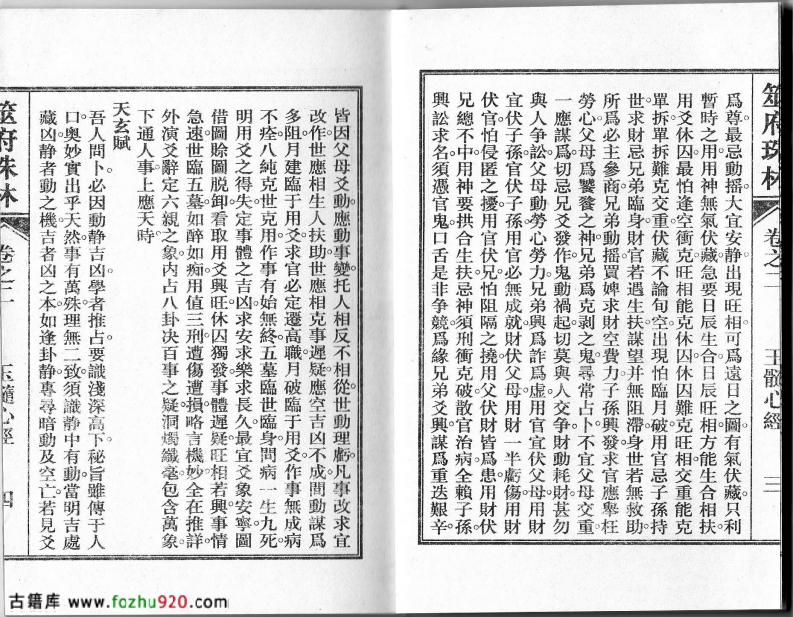 筮府珠林 卷之一 玉髓心經 三
爲尊最忌動搖大宜安静出現旺相可爲遠日之圖有氣伏藏只利
暫時之用用神無氣伏藏急要日辰生合日辰旺相方能生合相扶
用爻休囚最怕逢空衝克旺相能克休囚休囚難克旺相交重能克
單拆單拆難克交重伏藏不論旬空出現怕臨月破用官忌子孫持
世求財忌兄弟臨身財官若遇生扶謀望并無阻滯身世若無救助
所爲必主參商兄弟動搖買婢求財空費力子孫興發求官應舉枉
勞心父母爲饕餮之神兄弟爲克剥之鬼尋常占卜不宜父母交重
一應謀爲切忌兄爻發作鬼動禍起切莫與人交争財動耗財甚勿
與人争訟父母動勞心勞力兄弟興爲詐爲虚用官官伏父母用財
宜伏子孫官伏子孫用官必無成就財伏父母用財一半虧傷用財
伏官怕侵匿之擾用官伏兄怕阻隔之撓用父伏財皆爲患用財伏
兄總不中用神要拱合生扶忌神須刑衝克破散官治病全賴子孫
興訟求名須憑官鬼口舌是非争競爲緣兄弟爻興謀爲重迭艱辛
皆因父母爻動應動事變托人相反不相從世動理虧凡事改求宜
改作世應相生人扶助世應相克事遲疑應空吉凶不成間動謀爲
多阻月建臨于用爻求官必定遷高職月破臨于用爻作事無成病
不痊八純克世克用作事有始無終五墓臨世臨身問病一生九死
明用爻之得失定事體之吉凶求安求樂求長久最宜爻象安寧圖
借圖賒圖脱卸看取用爻興旺休囚獨發事體遲疑旺相若興事情
急速世臨五墓如醉如痴用值三刑遭傷遭損略言機妙全在推詳
外演爻辭定六親之象内占八卦决百事之疑洞燭纖毫包含萬象
下通人事上應天時
天玄賦
吾人問卜必因動静吉凶學者推占要識淺深高下秘旨雖傳于人
口奥妙實出乎天然事有萬殊理無二致須識静中有動當明吉處
藏凶静者動之機吉者凶之本如逢卦静專尋暗動及空亡若見爻
筮府珠林 卷之一 玉髓心經 四
古籍库 www.fozhu920.com